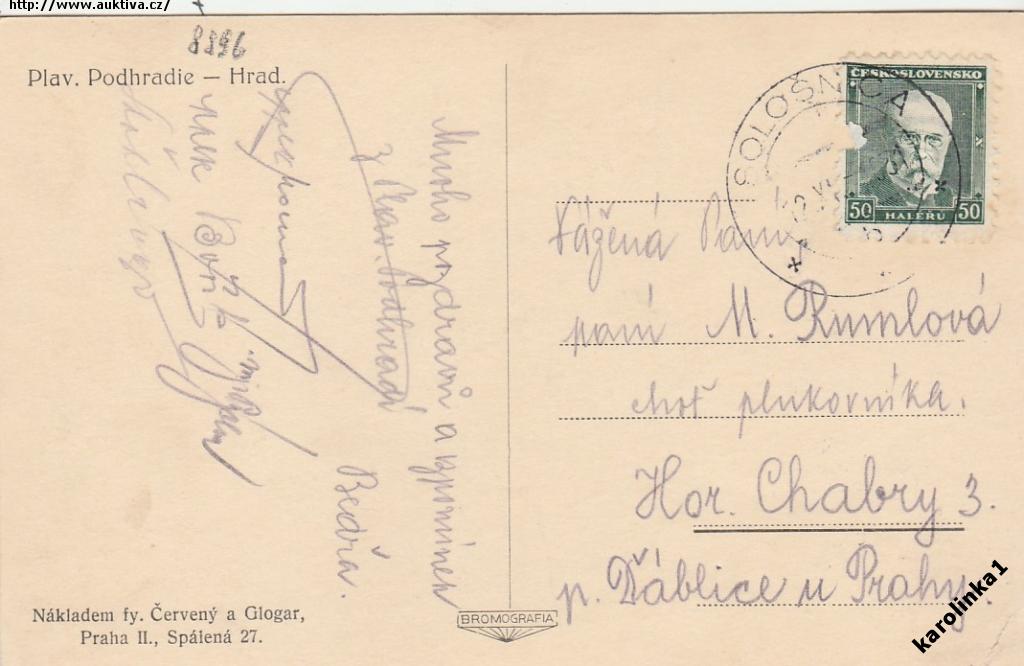 http://www.auktiva.cz/
8896
Plav. Podhradie — Hrad.
Mnoho pozdravů a vzpomínek
z Plav. Podhradí
Bedřa.
ČESKOSLOVENSKO
50 HALÉŘŮ 50
SOLOŠNICA
Vážená Paní
paní M. Rumlová
choť plukovníka.
Hor. Chabry 3.
p. Ďáblice u Prahy.
Nákladem fy. Červený a Glogar,
Praha II., Spálená 27.
BROMOGRAFIA
karolinka1